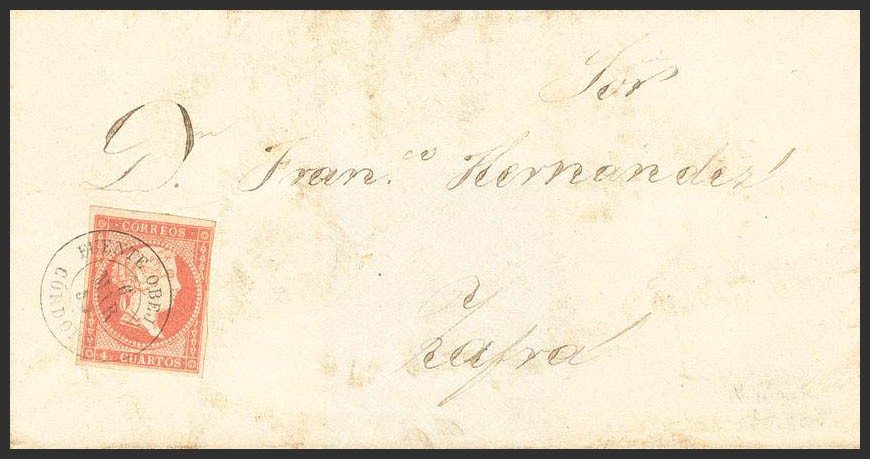 Sor
Dn. Fran.co Hernandez
Zafra
CORREOS
4. CUARTOS
FUENTE OBEJ
CORDO
6
MAR